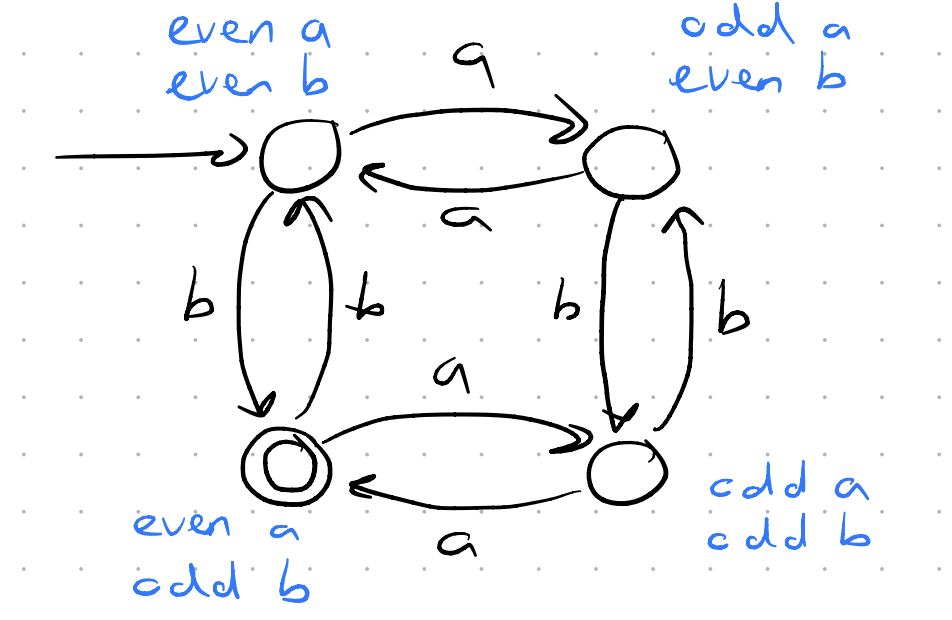 even a
even b
odd a
even b
a
a
b
b
b
b
a
a
even a
odd b
odd a
odd b